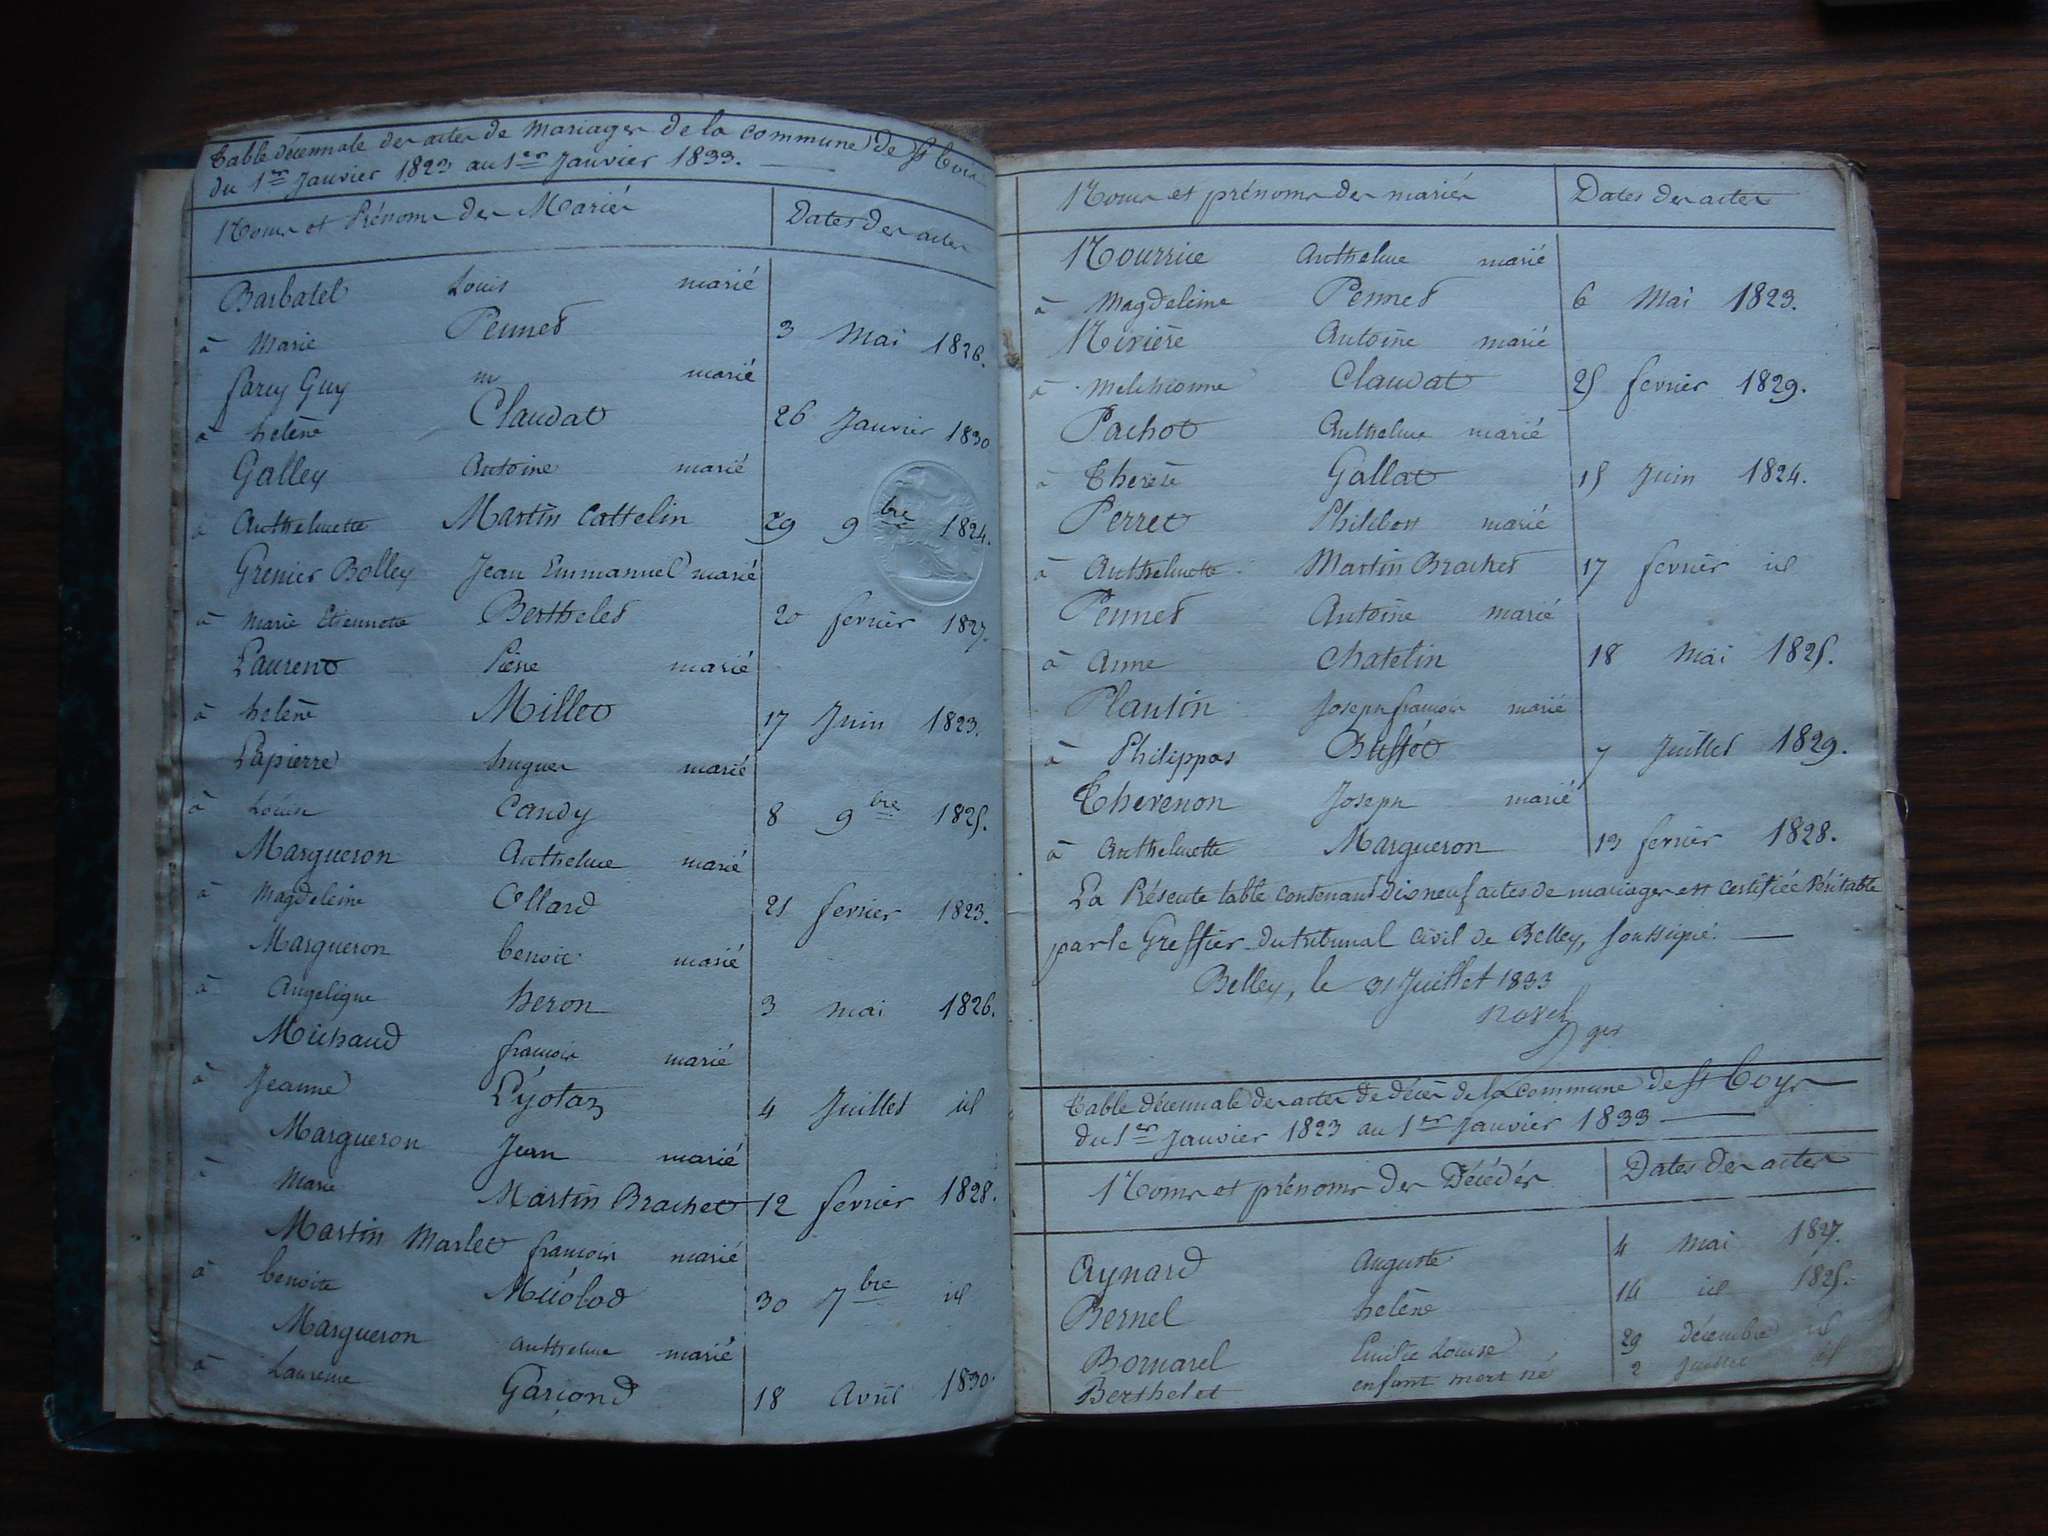 Table décennale des actes de Mariages de la commune de St
du 1er Janvier 1823 au 1er Janvier 1833.
Noms et Prénoms des Mariés Dates des actes
Barbatel Louis marié
à Marie Pennet 3 Mai 1826.
farcy Guy m marié
à helène Claudat 26 Janvier 1830
Galley Antoine marié
à Anthelmette Martin Cattelin 29 9bre 1824.
Grenier Bolley Jean Emmanuel marié
à Marie Etiennette Berthelet 20 fevrier 1827.
Laurent Pierre marié
à helène Millet 17 Juin 1823.
Lapierre hugues marié
à Louise Candy 8 9bre 1825.
Margueron Anthelme marié
à Magdeleine Collard 25 fevrier 1823.
Margueron benoit marié
à Angelique heron 3 mai 1826.
Michaud françois marié
à Jeanne Lyotaz 4 Juillet id
Margueron Jean marié
à Marie Martin Brachet 12 fevrier 1828.
Martin Marlet françois marié
à benoite 30 7bre id
Margueron anthelme marié
à Laurence Garçond 18 Avril 1830.
Noms et prénoms des mariés Dates des actes
Nourrice Anthelme marié
à Magdeleine Pennet 6 Mai 1823.
Nivière Antoine marié
à melchionne Claudat 25 fevrier 1829.
Pachot Anthelme marié
à Therèse Gallat 15 Juin 1824.
Perret Philibert marié
à Anthelmette Martin Brachet 17 fevrier id
Pennet Antoine marié
à Anne Chatelin 18 Mai 1825.
Plantin Joseph françois marié
à Philippas Buffét 7 Juillet 1829.
Thevenon Joseph marié
à Anthelmette Margueron 13 fevrier 1828.
La Présente table contenant dix neuf actes de mariages est certifiée Véritable
par le Greffier du tribunal Civil de Belley, soussigné.
Belley, le 31 Juillet 1833
ger
Table décennale des actes de décès de la commune de St boys
du 1er Janvier 1823 au 1er Janvier 1833
Noms et prénoms des Décédés Dates des actes
Aynard Auguste 4 Mai 1827.
Bernel helène 14 id 1825.
Bornarel Emilie Louise 29 décembre id
Berthelet enfant mort né 2 Juillet id